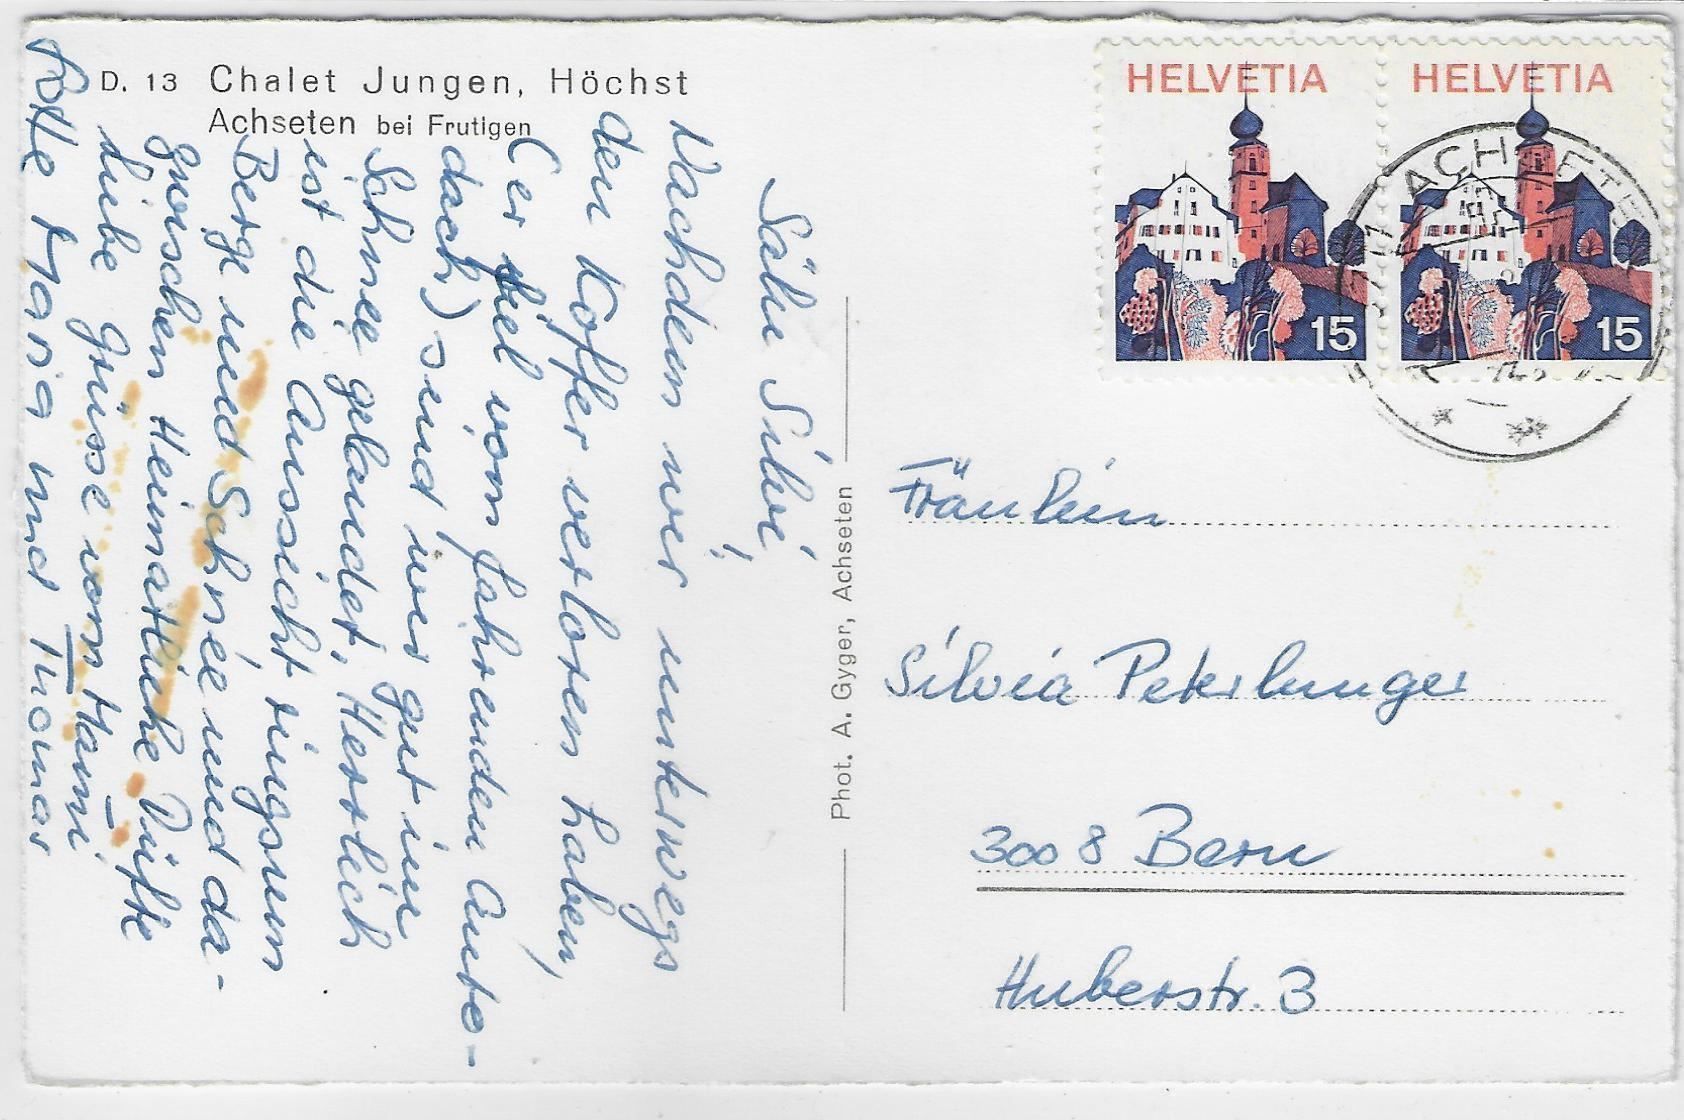 D. 13 Chalet Jungen, Höchst
Achseten bei Frutigen
Sälu Silvi!
Nachdem wir unterwegs
den Koffer verloren haben,
(er fiel vom fahrenden Auto-
dach) sind wir gut im
Schnee gelandet. Herrlich
ist die Aussicht ringsum
Berge und Schnee und da-
zwischen Heimatliche Düfte
Liebe Grüsse vom Hami
Lotte Maria und Thomas
Phot. A. Gyger, Achseten
HELVETIA
15
HELVETIA
15
ACHSETEN
Fräulein
Silvia Peterlunger
3008 Bern
Huberstr. 3